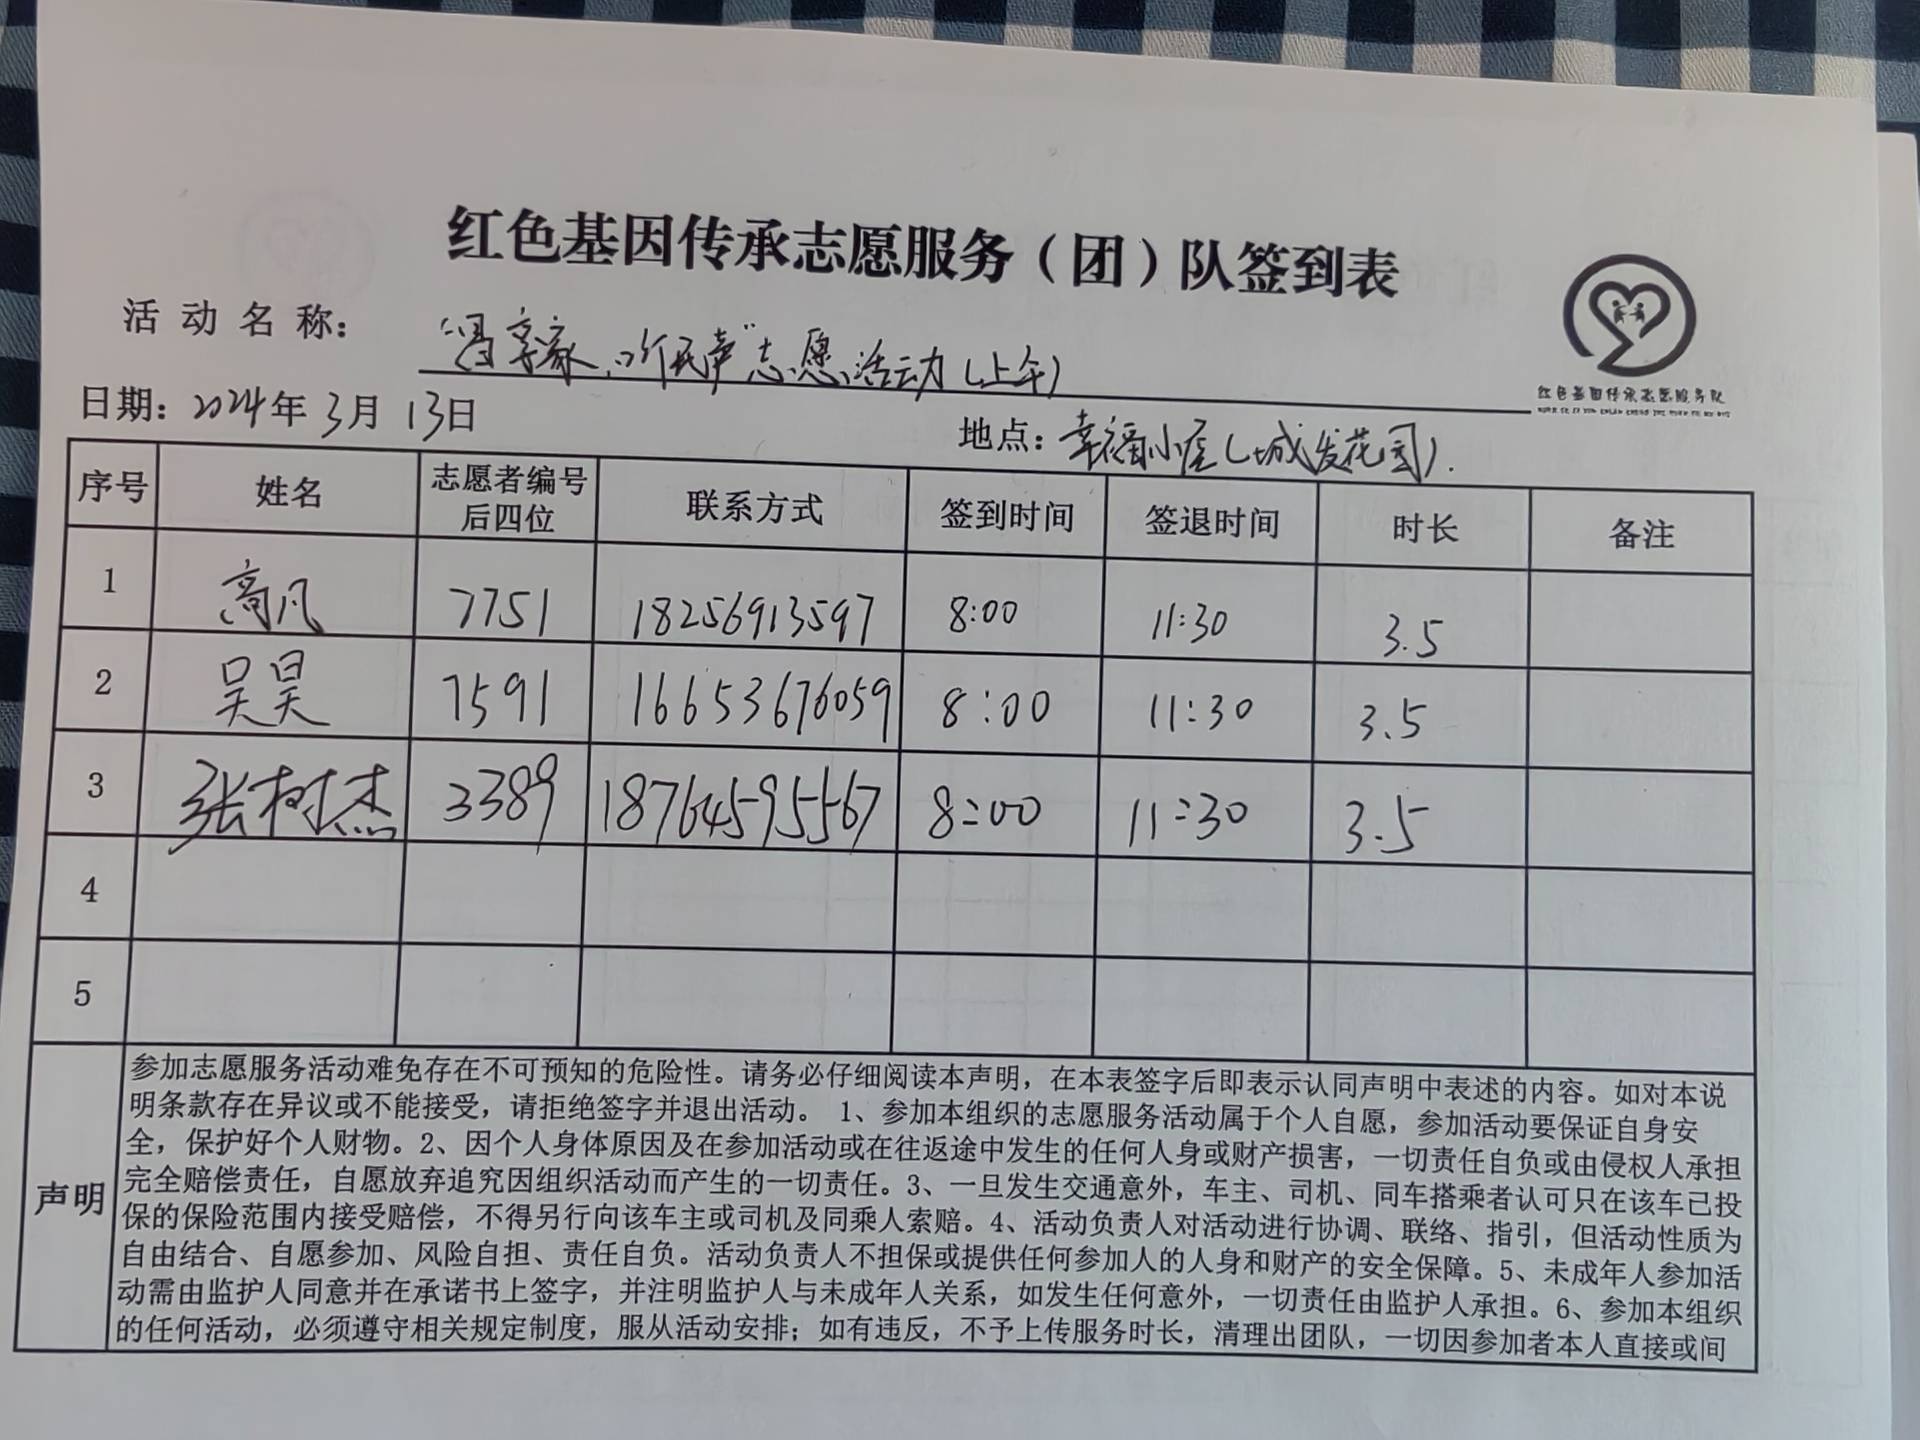 红色基因传承志愿服务（团）队签到表
活动名称：
享家、听民声”志愿活动（上午）
红色基因传承志愿服务队
日期：2024年3月13日
地点：幸福小屋（城发花园）.
序号 姓名 志愿者编号后四位 联系方式 签到时间 签退时间 时长 备注
1 高凡 7751 18256913597 8:00 11:30 3.5
2 吴昊 7591 16653676059 8:00 11:30 3.5
3 张树杰 3389 18764595567 8:00 11:30 3.5
4
5
声明
参加志愿服务活动难免存在不可预知的危险性。请务必仔细阅读本声明，在本表签字后即表示认同声明中表述的内容。如对本说
明条款存在异议或不能接受，请拒绝签字并退出活动。 1、参加本组织的志愿服务活动属于个人自愿，参加活动要保证自身安
全，保护好个人财物。2、因个人身体原因及在参加活动或在往返途中发生的任何人身或财产损害，一切责任自负或由侵权人承担
完全赔偿责任，自愿放弃追究因组织活动而产生的一切责任。3、一旦发生交通意外，车主、司机、同车搭乘者认可只在该车已投
保的保险范围内接受赔偿，不得另行向该车主或司机及同乘人索赔。4、活动负责人对活动进行协调、联络、指引，但活动性质为
自由结合、自愿参加、风险自担、责任自负。活动负责人不担保或提供任何参加人的人身和财产的安全保障。5、未成年人参加活
动需由监护人同意并在承诺书上签字，并注明监护人与未成年人关系，如发生任何意外，一切责任由监护人承担。6、参加本组织
的任何活动，必须遵守相关规定制度，服从活动安排；如有违反，不予上传服务时长，清理出团队，一切因参加者本人直接或间